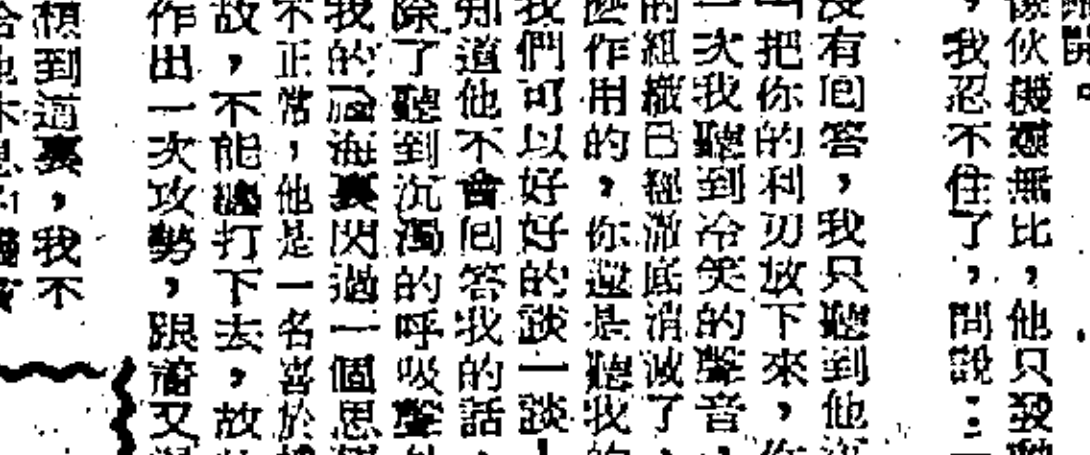 開
傢伙機靈無比，他只發
，我忍不住了，問說：
沒有回答，我只聽到他
把你的利刃放下來，你
一次我聽到冷笑的聲音，
的組織已經澈底消滅了，
麼作用的，你還是聽我的
我們可以好好的談一談
知道他不會回答我的話，
除了聽到沉濁的呼吸聲
我的腦海裏閃過一個思
不正常，他是一名喜於
故，不能打下去，故
作出一次攻勢，跟着又
想到這裏，我不
給他休息